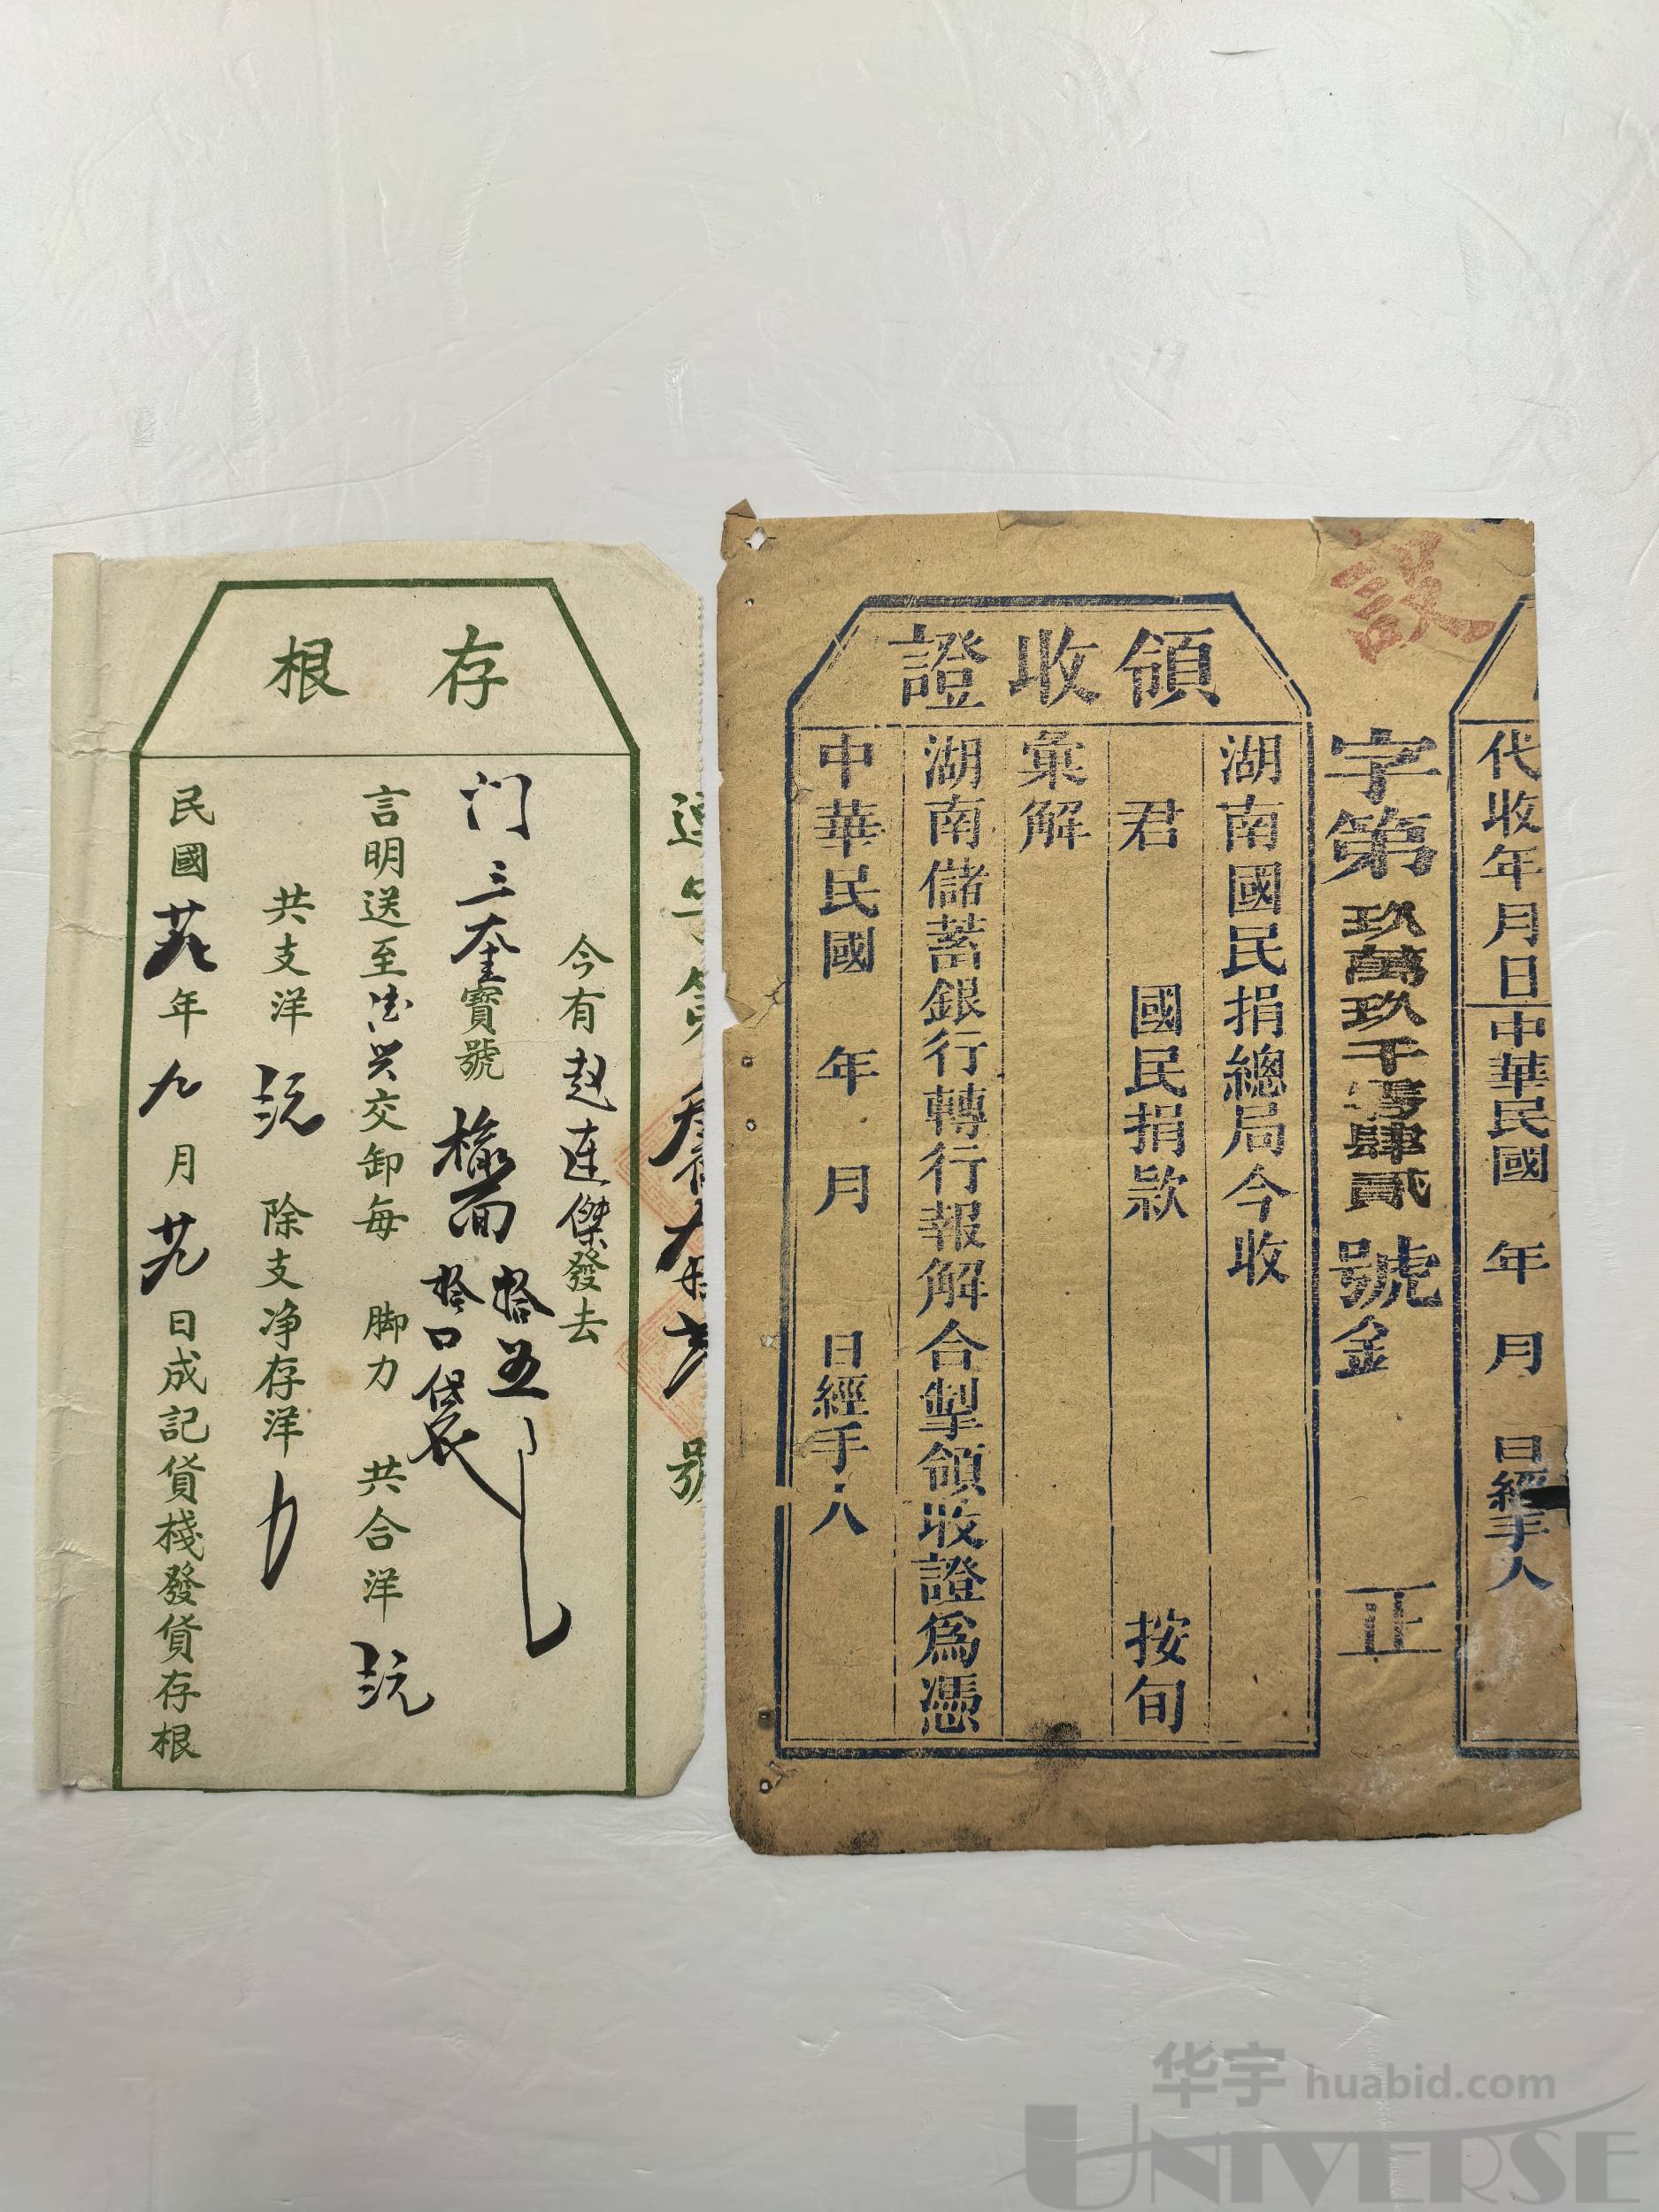 代收年月日中華民國 年 月 日經手人
誤
字第玖萬玖千零肆貳號金 正
領收證
湖南國民捐總局今收
君 國民捐款 按旬
彙解
湖南儲蓄銀行轉行報解合掣領收證爲憑
中華民國 年 月 日經手人
號
存根
今有赵連傑發去
门三奎寶號 拾五
拾口袋
言明送至 兴交卸每 脚力 共合洋
共支洋 除支净存洋
民國 年九月 日成記貨棧發貨存根
华宇 huabid.com
UNIVERSE